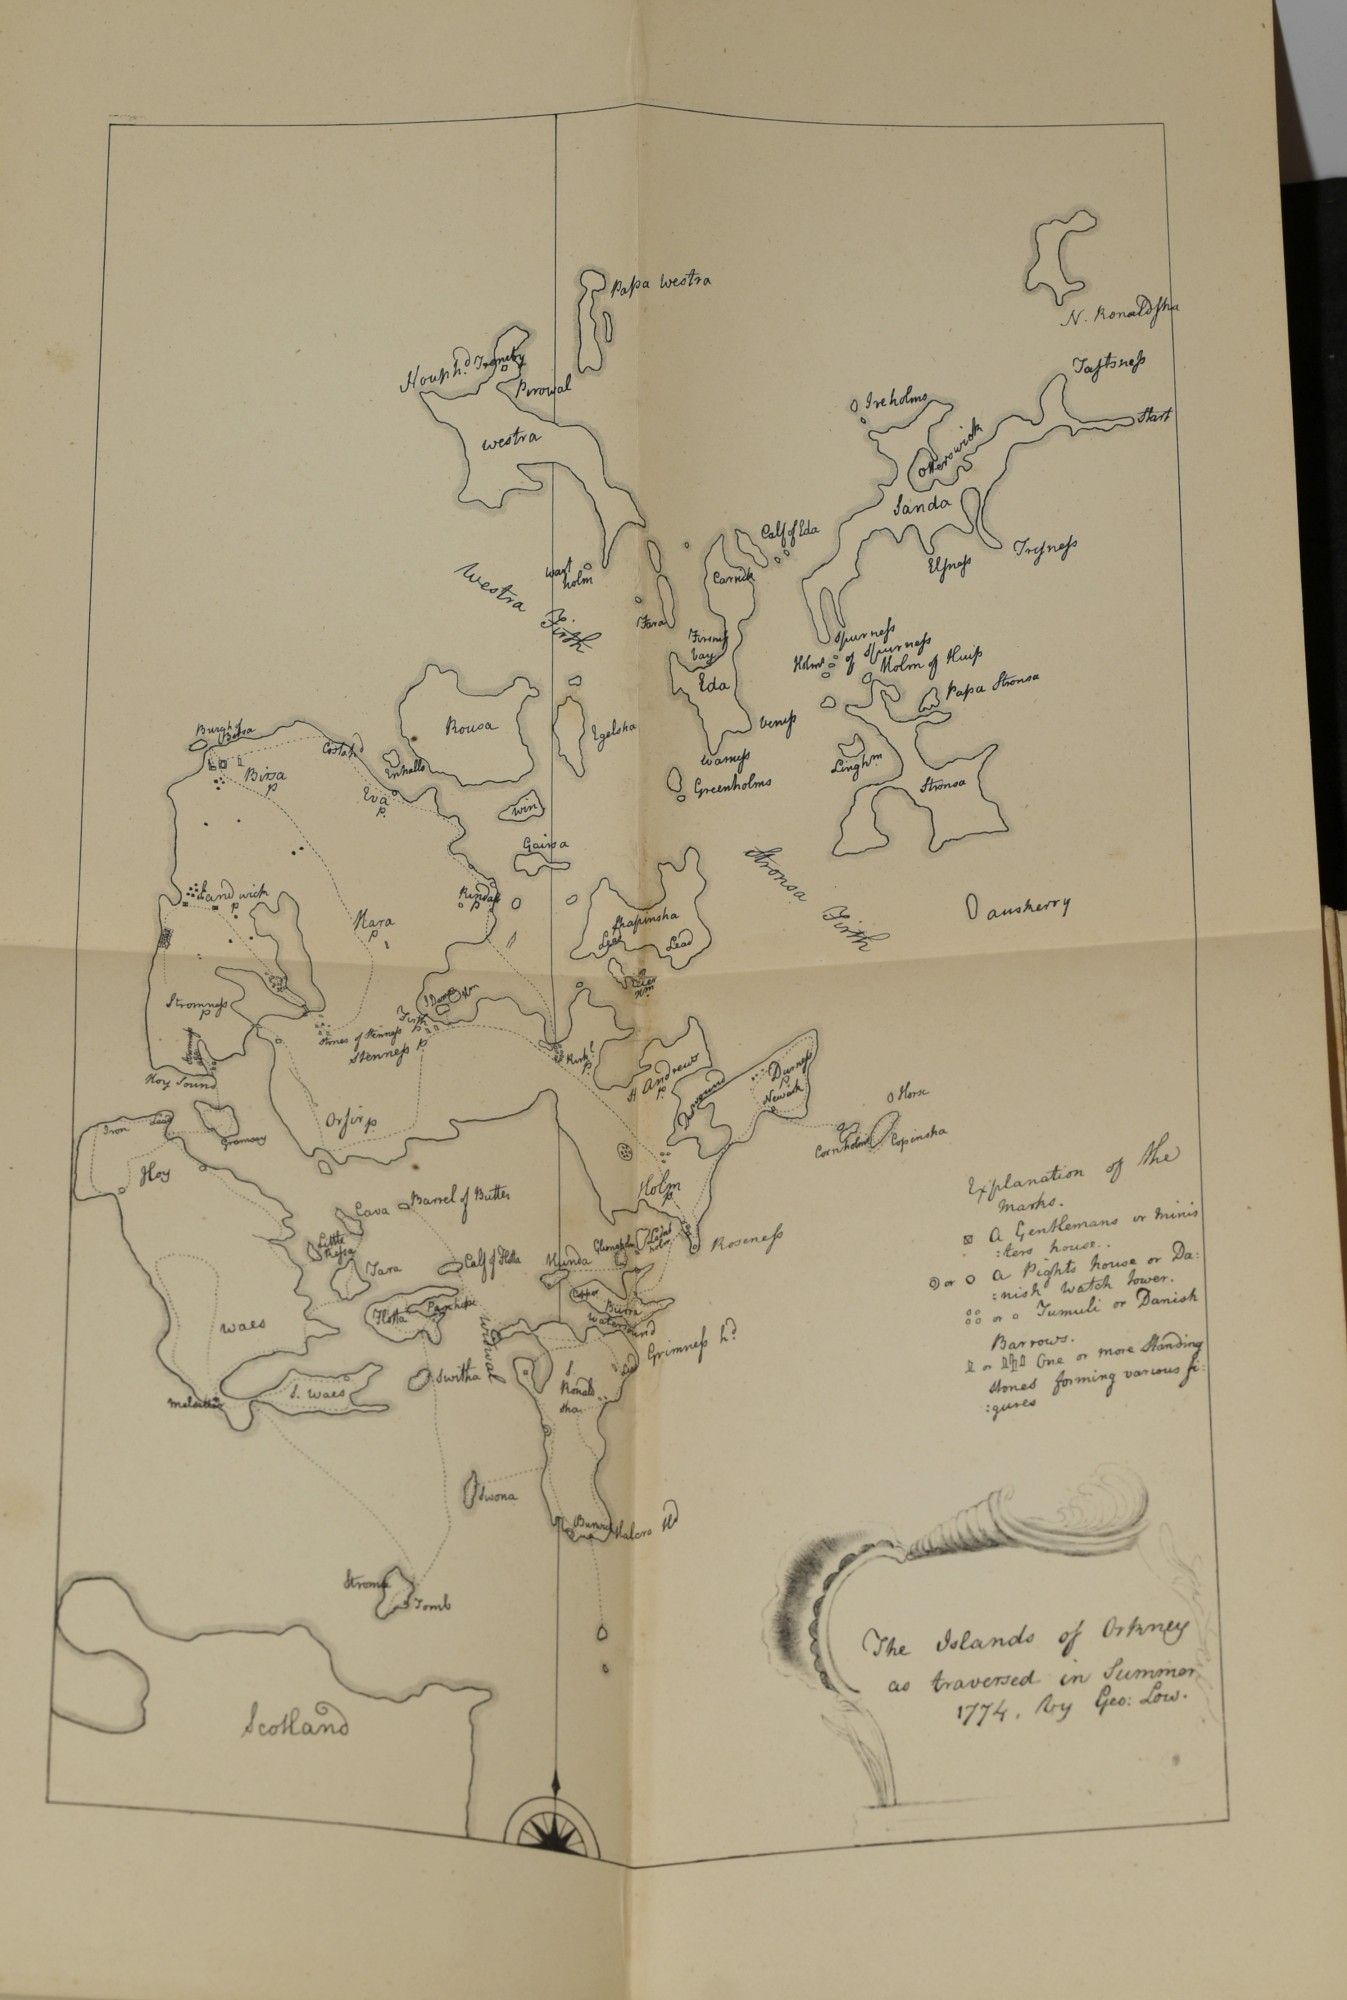 Papa Westra
N. Ronaldsha
Houph.d
Pirowal
Westra
Taftsness
Start
Ireholms
Otterswick
Sanda
Elsness
Calf of Eda
Carrick
Wart
holm
Westra Firth
Fara
bay
Eda
Veness
Warness
Greenholms
Spurness
Holms of Spurness
Holm of Huip
Papa Stronsa
Lingh.m
Stronsa
Rousa
Egelsha
Burgh of
Birsa
Birsa
p
Costa h.d
Enhallo
Eva
p.
Wir
Gairsa
Stronsa Firth
Sandwick
p
Rendall
p
Hara
p
Shapinsha
Lead
Auskerry
Stromness
p
Firth
p
Stones of Stenness
Stenness p
Kirk.l
p.
St Andrews
p.
Hoy Sound
Durness
p
Newark
Horse
Cornholm
Copinsha
Orfir p
Gramsay
Iron
Lead
Hoy
Holm
p
Cava
Barrel of Butter
Little
Fara
Calf of Flotta
Hunda
Roseness
Flotta
Panhope
Burra
Watersound
Grimness h.d
Waes
Switha
Widwal
S. Waes
S.
Ronald
sha
Swona
Burwick
Halcro H.d
Stroma
Tomb
Scotland
Explanation of the
marks.
A Gentlemans or minis
:ters house.
or A Pights house or Da:
:nish watch tower.
or Tumuli or Danish
Barrows.
or One or more Standing
stones forming various fi:
:gures
The Islands of Orkney
as traversed in Summer
1774, by Geo: Low.